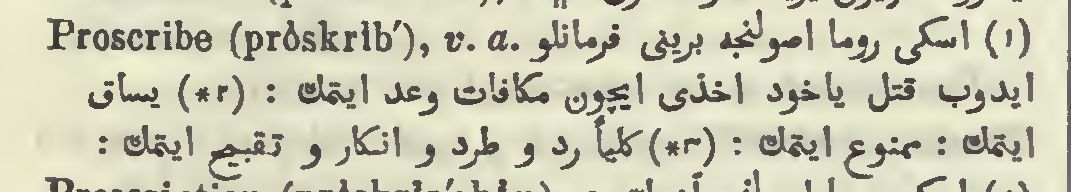 Proscribe (pròskrīb′), v. a. (۱) اسكى روما اصولنجه برينى فرمانلو
ايدوب قتل ياخود اخذى ايچون مكافات وعد ايتمك : (۲*) يساق
ايتمك : ممنوع ايتمك : (۳*) كلياً رد و طرد و انكار و تقبيح ايتمك :